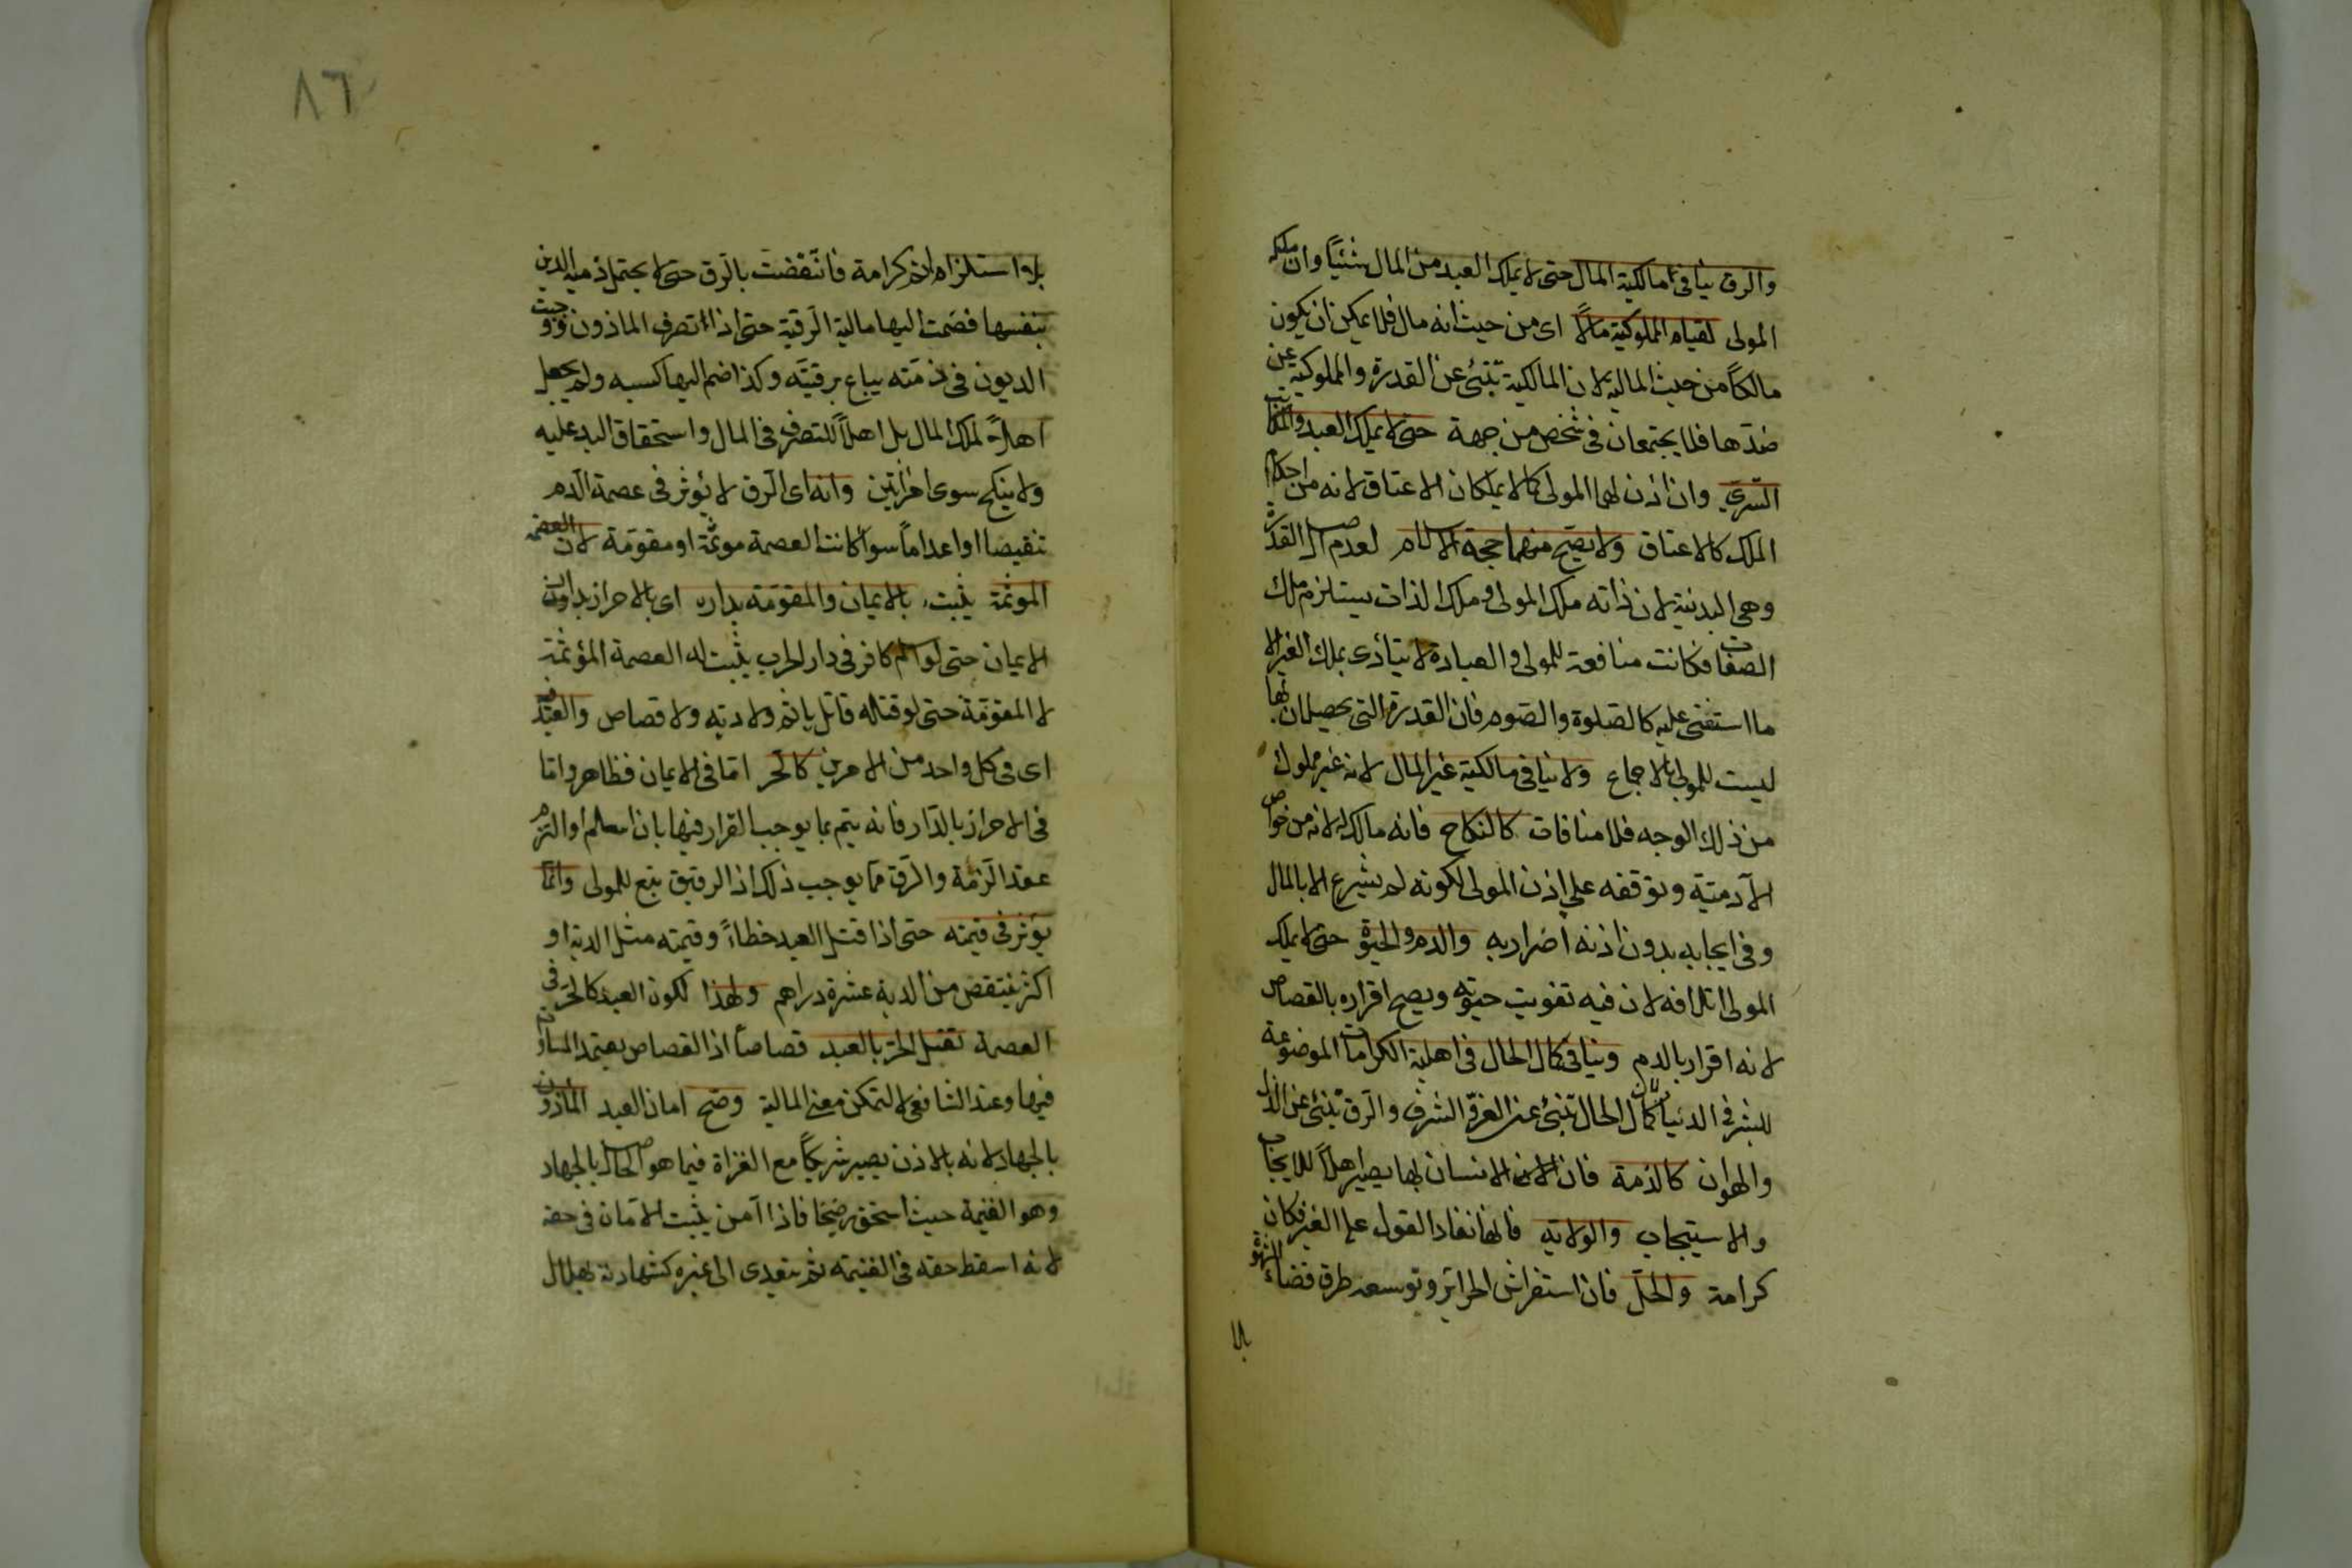 والرق ينافى مالكية المال حتى لا يملك العبد من المال شيئاً وان ملكه
المولى لقيام المملوكية مالاً اى من حيث انه مال فلا يمكن ان يكون
مالكاً من حيث المالية لان المالكية تنبئ عن القدرة والمملوكية عن
ضدّها فلا يجتمعان فى شخص من جهة حتى لا يملك العبد والمكاتب
التسرى وان اذن لهما المولى كما لا يملكان الاعتاق لانه من احكام
الملك كالاعتاق ولا يصح منهما حجة الاسلام لعدم اصل القدرة
وهى البدنية لان ذاته ملك المولى وملك الذات يستلزم ملك
الصفات فكانت منافعه للمولى والعبادة لا يتأدى بملك الغير الا
ما استثنى عليه كالصلوة والصوم فان القدرة التى يحصلان بها
ليست للمولى بالاجماع ولا ينافى مالكية غير المال لانه غير مملوك
من ذلك الوجه فلا منافات كالنكاح فانه مالك له لانه من خواص
الآدمية وتوقفه على اذن المولى لكونه لم يشرع الا بالمال
وفى ايجابه بدون اذنه اضرار به والدم والحيوة حتى لا يملك
المولى اتلافه لان فيه تفويت حيوته ويصح اقراره بالقصاص
لانه اقرار بالدم وينافى كمال الحال فى اهلية الكرامات الموضوعة
للبشر فى الدنيا لان كمال الحال تنبئ عن العزة الشرف والرق ينبئ عن الذل
والهوان كالذمة فان الانسان بها يصير اهلاً للايجاب
والاستيجاب والولاية فانها نفاد القول على الغير فكان
كرامة والحل فان استفراش الحرائر وتوسعه طرق قضاء الشهوة
بلا
٨٦
بلا استلزام اثم كرامة فانتقضت بالرق حتى لا يحتمل ذمته الدين
بنفسها فضمت اليها مالية الرقبة حتى اذا تصرف الماذون ووجبت
الديون فى ذمته يباع برقبته وكذا ضم اليها كسبه ولم يجعل
اهلاً لملك المال بل اهلاً للتصرف فى المال واستحقاق اليد عليه
ولا ينكح سوى امرأتين وانه اى الرق لا يؤثر فى عصمة الدم
تنقيصا او اعداماً سوأ كانت العصمة موثمة او مقومة لان العصمة
الموثمة يثبت بالايمان والمقومة بداره اى بالاحراز بدار
الايمان حتى لو اسلم كافر فى دار الحرب يثبت له العصمة المؤثمة
لا المقومة حتى لو قتله قاتل يأثم ولا دية ولا قصاص والعبد فيه
اى فى كل واحد من الامرين كالحر اما فى الايمان فظاهر واما
فى الاحراز بالدار فانه يتم بما يوجب القرار فيها بان اسلم او التزم
عقد الذمة والرق مما يوجب ذلك اذ الرقيق تبع للمولى وانما
يؤثر فى قيمته حتى اذا قتل العبد خطاءً وقيمته مثل الدية او
اكثر ينتقض من الدية عشرة دراهم ولهذا لكون العبد كالحر فى
العصمة تقتل الحر بالعبد قصاصاً اذ القصاص يعتمد المساواة
فيها وعند الشافعى لا لتمكن معنى المالية وصح امان العبد الماذون
بالجهاد لانه بالاذن يصير شريكاً مع الغزاة فيما هو الحاصل بالجهاد
وهو الغنيمة حيث استحق رضخا فاذا آمن يثبت الامان فى حقه
لانه اسقط حقه فى الغنيمة ثم يتعدى الى غيره كشهادته بهلال